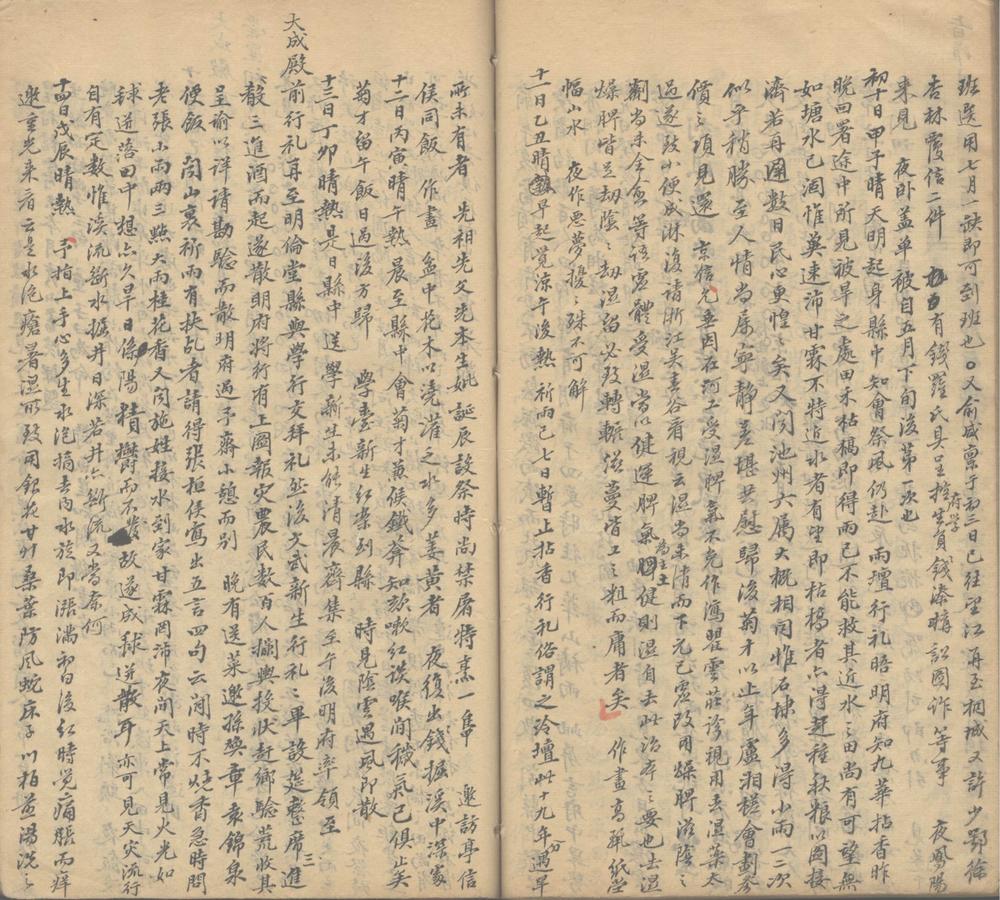 班選用七月一缺即可到班也○又俞成禀于初三日已往望江再至桐城又許少鄂徐
杏林覆信二件 有錢羅氏具呈控生員錢溱購訟圖詐等事 夜鳳陽
府學
來見 夜卧蓋单被自五月下旬後第一次也
初十日甲子晴天明起身縣中知會祭風仍赴雨壇行礼晤明府知九華拈香昨
晚回署途中所見被旱之處田禾枯稿即得雨已不能救其近水之田尚有可望無
如塘水已涸惟冀速沛甘霖不特近水者有望即枯稿者亦得趕種秋粮以圖接
濟若再圍數日民心更惶惶矣又闻池州六属大概相同惟石埭多得小雨一二次
似乎稍勝至人情尚属寧静差堪共慰歸後菊才以上年蘆湘槎會劃参
價之項見還 京信允垂因在河工受濕脾氣不克作瀉翟雲莊診視用袪濕藥太
過遂致小便成淋復請浙江吴春谷看視云濕尚未清而下元已虚改用燥脾滋陰之
劑尚未全愈等語虚體受濕當以健運脾氣為主脾健則濕自去此治本之要也去濕
燥脾皆足劫陰劫濕留必致轉輾滋蔓皆工之粗而庸者矣 作畫高麗紙堂
幅山水 夜作悪夢擾擾殊不可解
十一日乙丑晴熱早起覺凉午後熱祈雨已七日暫止拈香行礼俗謂之冷壇此十九年分遇旱
所未有者 先祖先父先本生妣誕辰設祭時尚禁屠特烹一隻 邀訪亭信
侯同飯 作畫 盆中花木以澆灌之水多萎黄者 夜復出錢掘溪中深窩
十二日丙寅晴午熱 晨至縣中會菊才蕉侯鐵莽知咳嗽紅淡喉間穢氣已俱止矣
菊才留午飯日過後方歸 學臺新生红案到縣 時見陰雲遇風即散
十三日丁卯晴熱是日縣中送學新生未能清晨齊集至午後明府率領至
大成殿前行礼再至明倫堂縣與學行交拜礼然後文武新生行礼礼畢設筵整席三進
殽三進酒而起遂散明府将行有上圖報灾農民数百人攔輿投状赶鄉驗荒收其
呈諭以詳请勘驗而散明府過予齋小憩而别 晚有送菜邀孫奬章袁錦泉
便飯 闻山裏祈雨有扶乩者請得張桓侯寫出五言四句云闲時不烧香急時問
老張小雨兩三點大雨桂花香又闻施姓接水到家甘霖罔沛夜间天上常見火光如
毬迸落田中想亦久旱日條陽積鬱而不發故遂成毬迸散耳亦可見天灾流行
自有定數惟溪流斷水掘井日深若井亦斷流又當奈何
十四日戊辰晴熱 予指上手心多生水泡摘去内水旋即漲满初白後红時覺痛脹而痒
邀重光来看云是水泡癧暑濕所致用銀花甘艸桑葉防風蛇床子川柏煎湯洗之